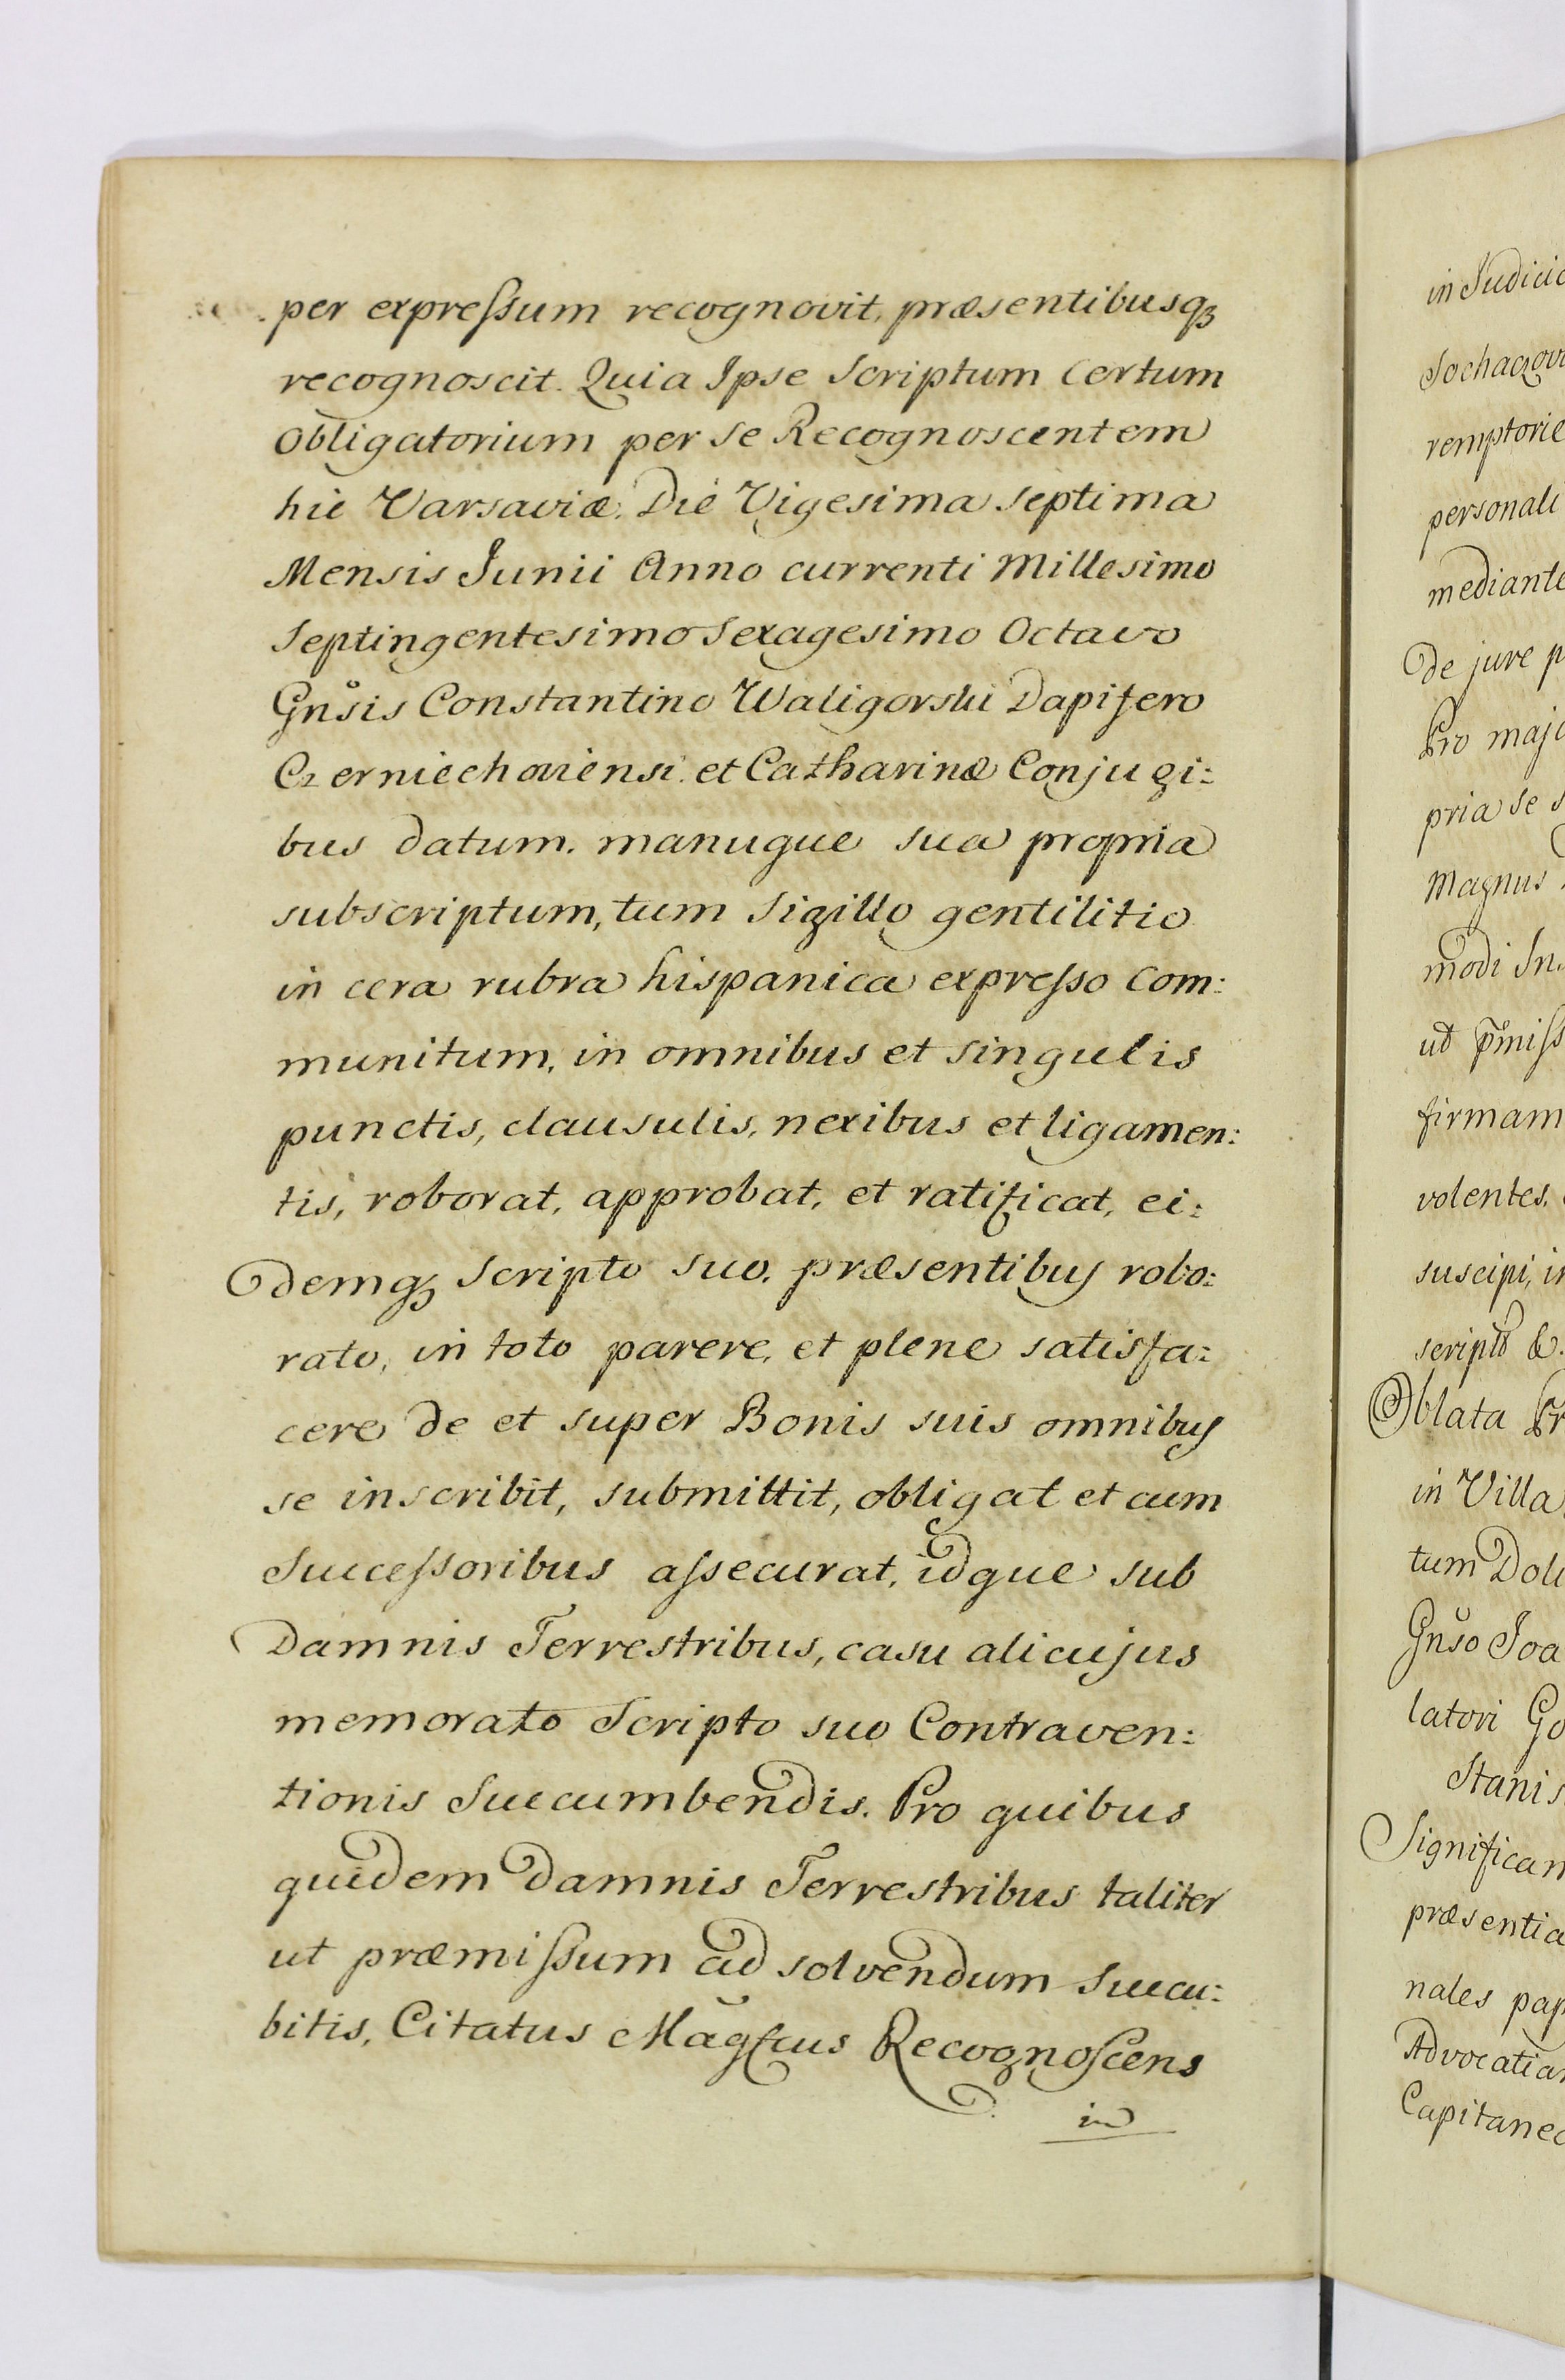 per expreſsum recognovit, præsentibusqꝫ
recognoscit. Quia Ipse Scriptum Certum
Obligatorium per se Recognoscentem
hic Varsaviæ. Die Vigesima septima
Mensis Junii Anno currenti Millesimo
Septingentesimo Sexagesimo Octavo
Gnȯsis Constantino Waligorski Dapifero
Czerniechoviensi. et Catharinæ Conjugi:
bus datum. manuque sua propria
subscriptum, tum Sigillo gentilitio
in cera rubra hispanica expreſso com:
munitum, in omnibus et singulis
punctis, clausulis, nexibus et ligamen:
tis, roborat, approbat, et ratificat, ei:
demqꝫ Scripto suo. præsentibus robo:
rato, in toto parere, et plene satisfa:
cere de et super Bonis suis omnibus
se inscribit, submittit, obligat et cum
Succeſsoribus aſsecurat, idque sub
Damnis Terrestribus, casu alicujus
memorato Scripto suo Contraven:
tionis Succumbendis. Pro quibus
quidem Damnis Terrestribus taliter
ut præmiſsum ad solvendum Succu:
bitis, Citatus Magfcus Recognoscens
in
in Judici
Sochaczov
remptorie
personali
mediante
De jure p
Pro maj
pria se s
Magnus
modi In
ut pmiſs
firmam
volentes.
suscipi, in
script &.
Oblata Pr
in Villa
tum Dol
Gnŭso Joa
latori Go
Stanis
Significan
præsentia
nales pap
Advocatia
Capitane